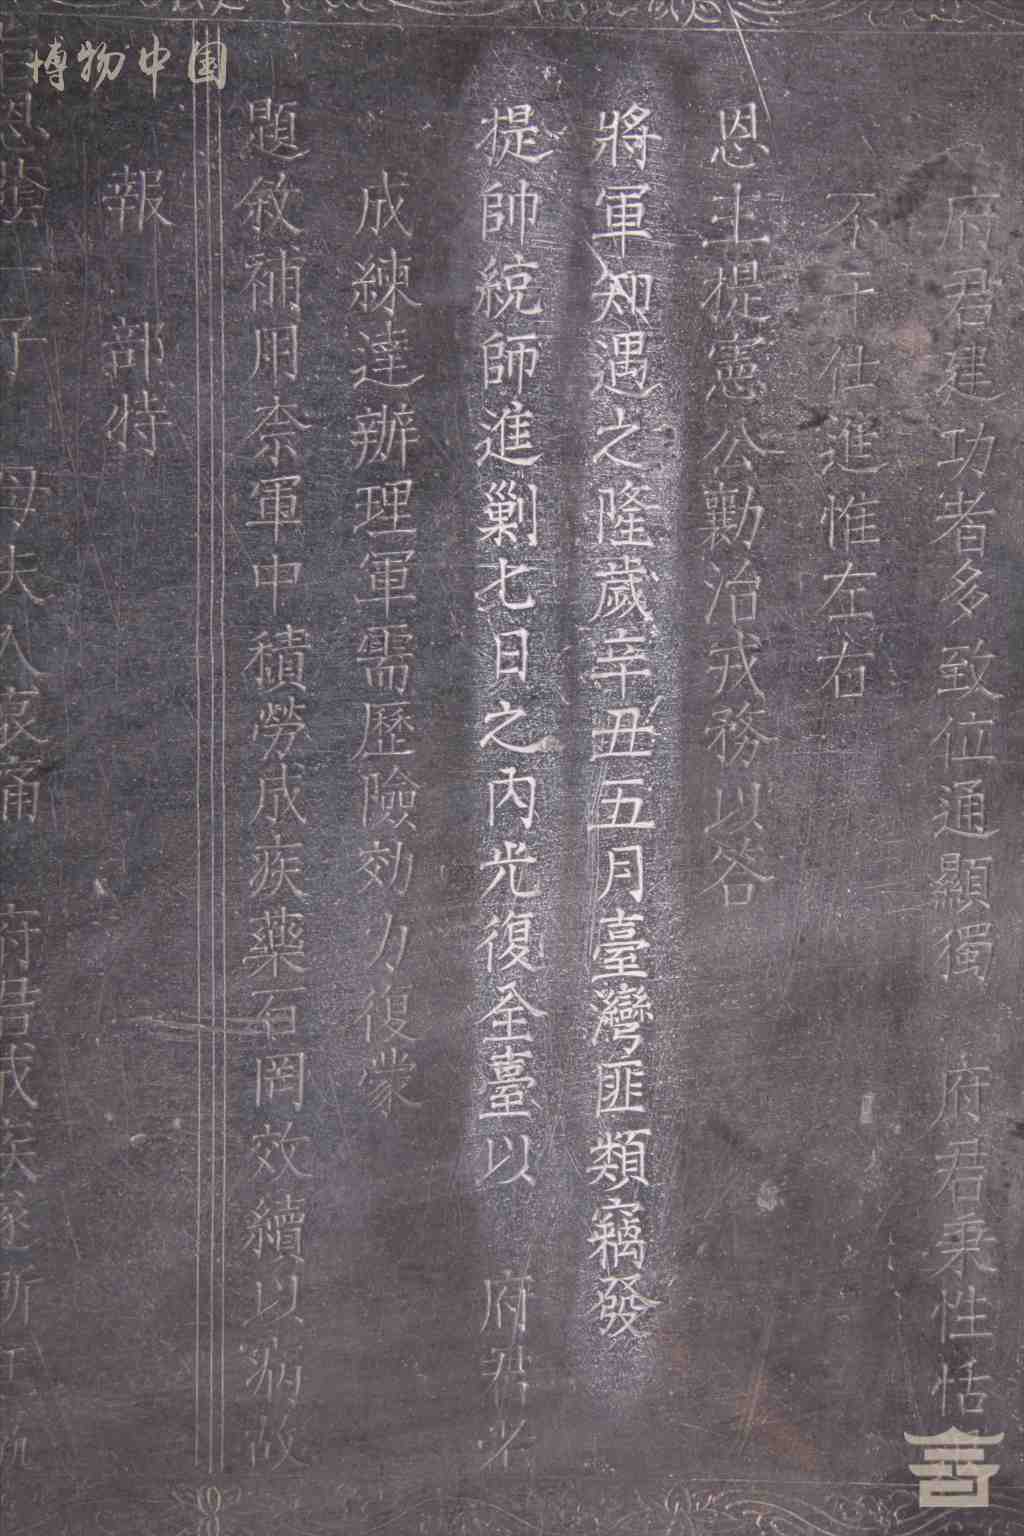 博物中国
府君建功者多致位通顯獨　府君秉性恬
不干仕進惟左右
恩主提憲公勷治戎務以答
將軍知遇之隆歲辛丑五月臺灣匪類竊發
提帥統師進剿七日之內光復全臺以　府君老
成練達辦理軍需歷險効力復蒙
題敘補用奈軍中積勞成疾藥石罔效續以病故
報　部特
恩蔭一子　母夫人哀痛　府君成疾逐